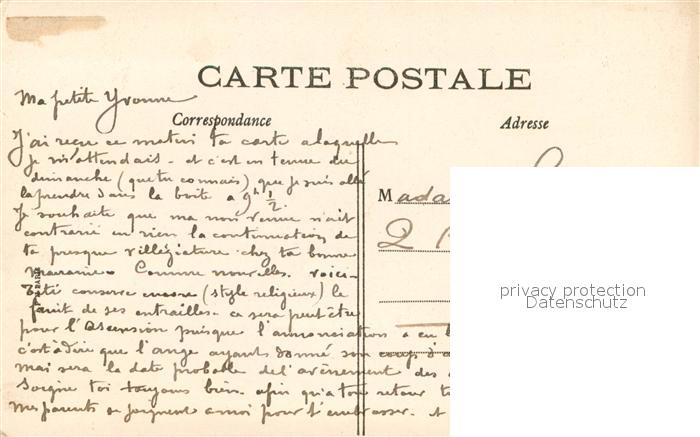 CARTE POSTALE
Ma petite Yvonne
Correspondance
Adresse
J'ai reçu ce matin ta carte a laquelle
je m'attendais - et c'est en tenue du
dimanche (que tu connais) que je suis allé
la prendre dans la boîte a 9h ½.
Je souhaite que ma non venue n'ait
contrarié en rien la continuation de
ta presque villégiature chez ta bonne
marraine. Comme nouvelles. voici-
Titi conserve encore (style religieux) le
fruit de ses entrailles. ce sera peut être
pour l'Ascension puisque l'annonciation a eu
c'est à dire que l'ange ayant donné son coup d'
mai sera la date probable de l'avènement des
Soigne toi toujours bien. afin qu'a ton retour
Mes parents se joignent a moi pour t'embrasser. et
M
2
privacy protection
Datenschutz